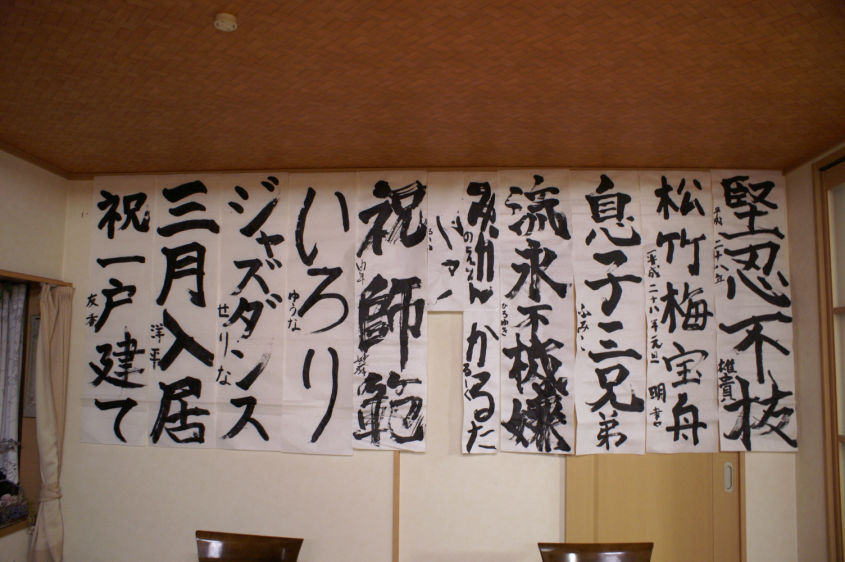 堅忍不抜
平成二十八年
雄貴
松竹梅宝舟
平成二十八年元旦
明書
息子三兄弟
ふみこ
流永不機嫌
ひろゆき
かるた
みかん
祝師範
いろり
ゆうな
ジャズダンス
せりな
三月入居
洋平
祝一戸建て
友香